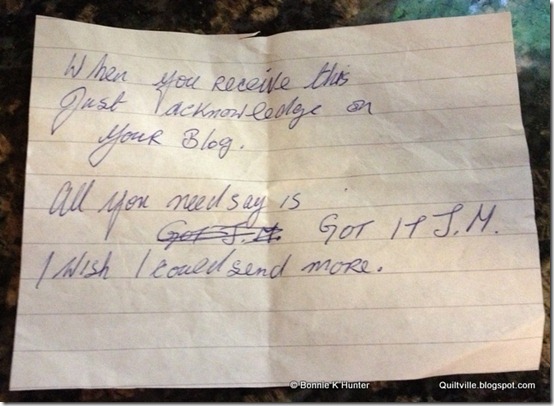 When you receive this
Just acknowledge on
your Blog.
All you need say is
Got J.M. Got it J.M.
I wish I could send more.
© Bonnie K Hunter
Quiltville.blogspot.com